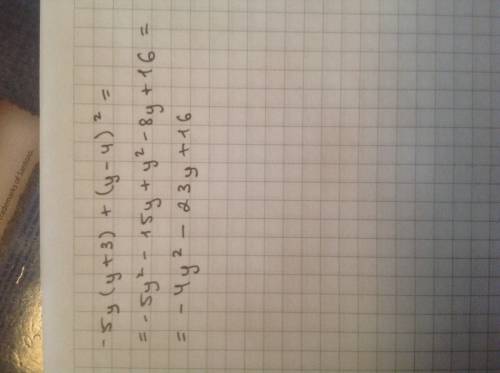 - 5y (y + 3) + (y - 4)² =
= - 5y² - 15y + y² - 8y + 16 =
= - 4y² - 23y + 16